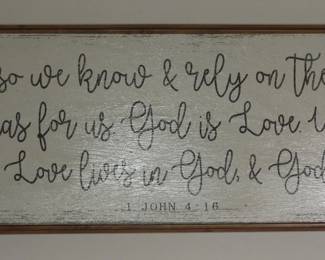 so we know & rely on the
as for us. God is Love. W
Love lives in God, & God
1 JOHN 4:16